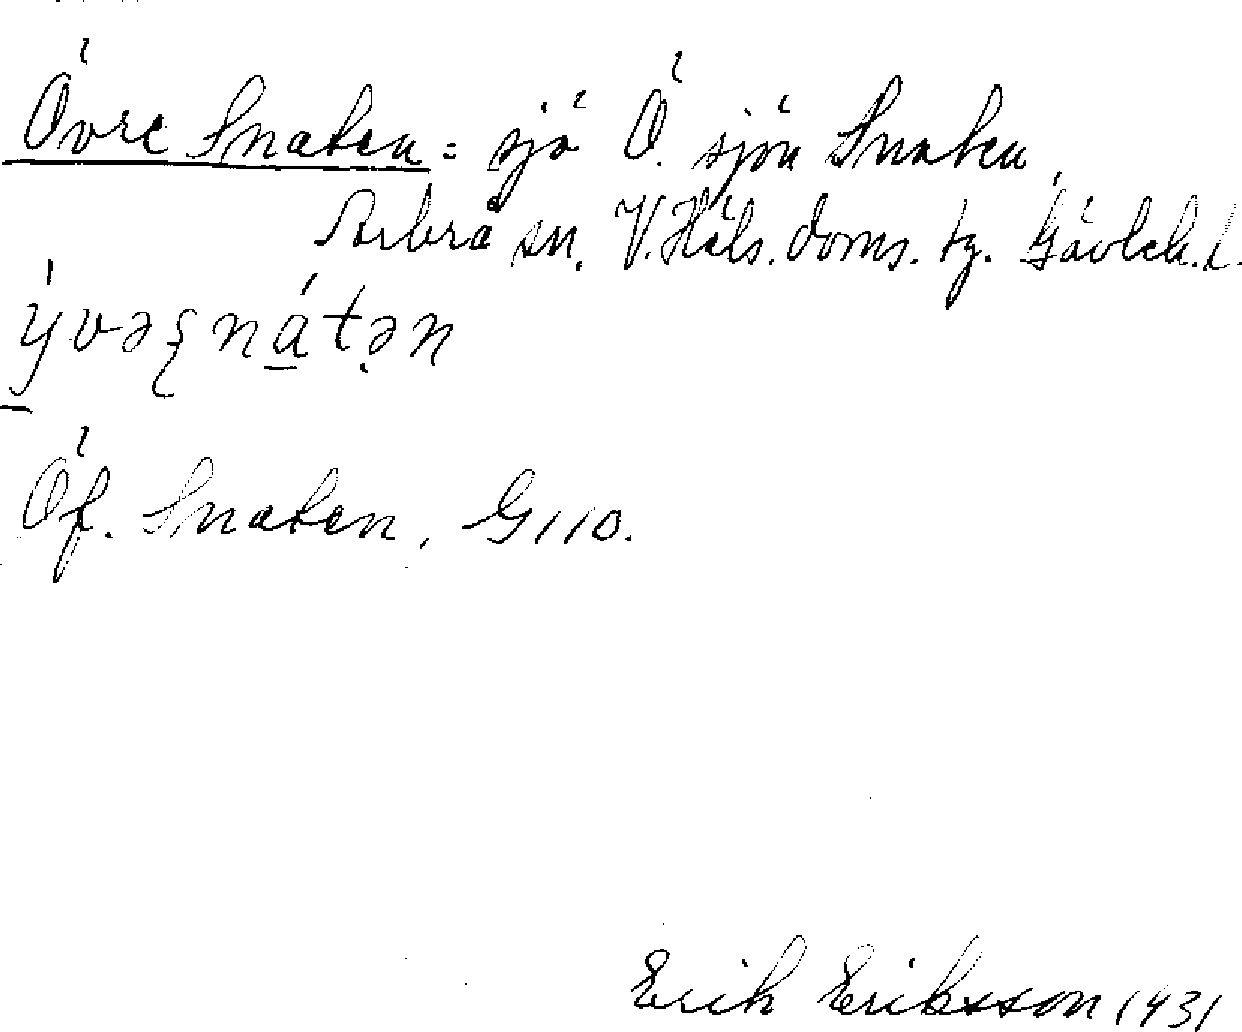 Övre Snaten = sjö Ö. sjön Snaten,
Arbrå sn. V. Häls. doms. tg. Gävleb. l.
ývəʂnátən
Öf. Snaten, G110.
Erik Eriksson 1931